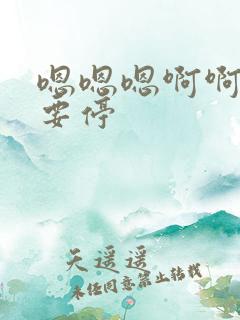 嗯嗯嗯啊啊
要停
天遥遥
未经同意禁止转载